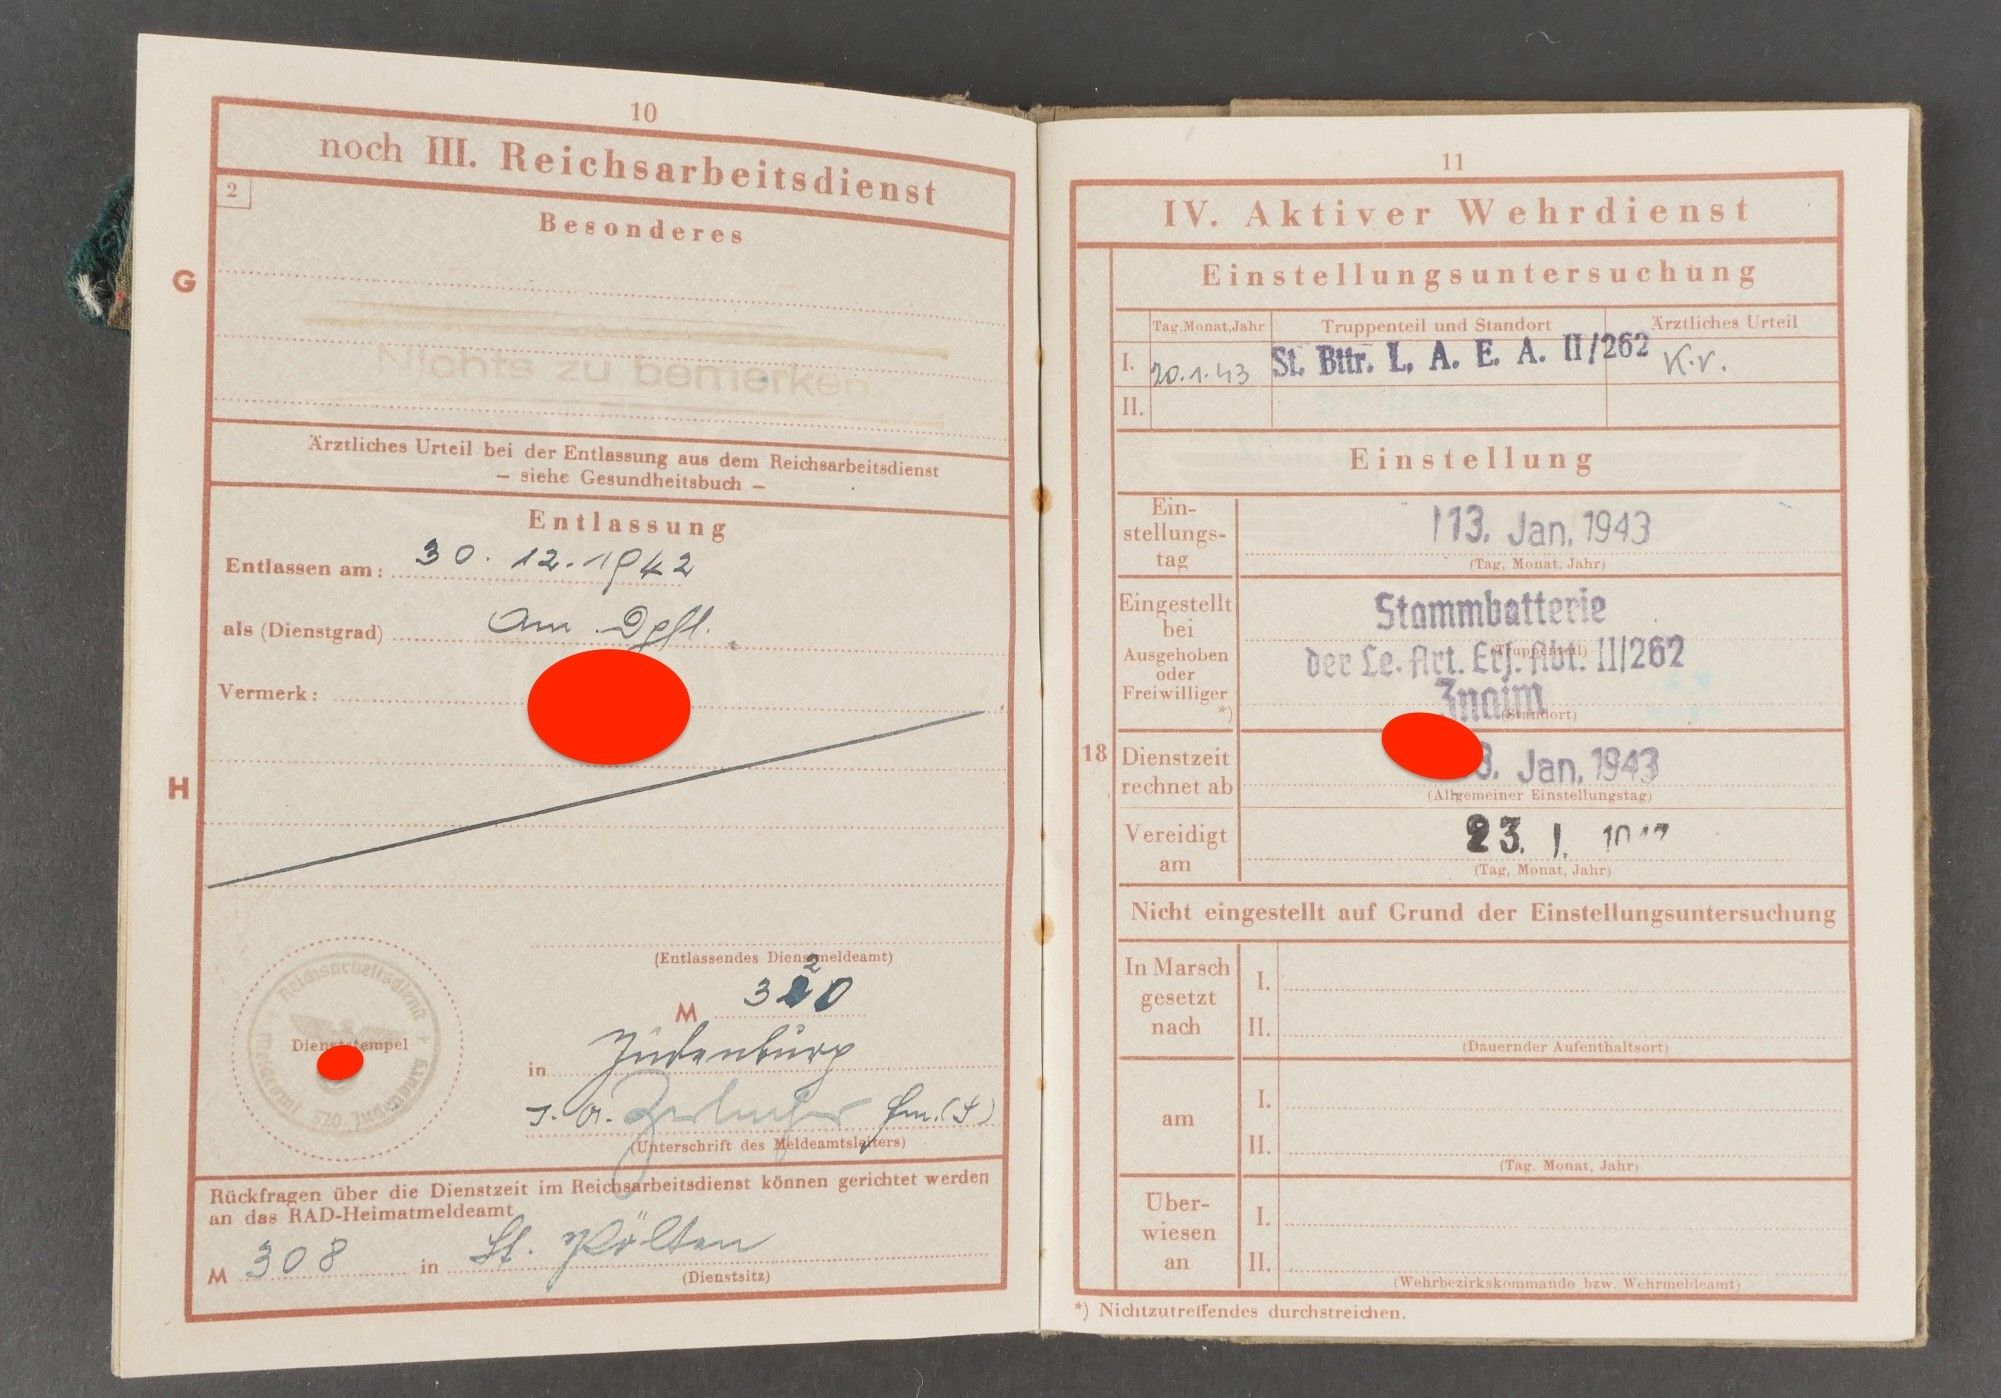 10
noch III. Reichsarbeitsdienst
2
Besonderes
G
Nichts zu bemerken
Ärztliches Urteil bei der Entlassung aus dem Reichsarbeitsdienst
– siehe Gesundheitsbuch –
Entlassung
Entlassen am: 30. 12. 1942
als (Dienstgrad)
Vermerk:
H
(Entlassendes Dienstmeldeamt)
M 320
2
in Judenburg
(Unterschrift des Meldeamtsleiters)
Reichsarbeitsdienst
Dienststempel
Meldeamt 320 Judenburg
Rückfragen über die Dienstzeit im Reichsarbeitsdienst können gerichtet werden
an das RAD-Heimatmeldeamt
M 308 in St. Pölten
(Dienstsitz)
11
IV. Aktiver Wehrdienst
Einstellungsuntersuchung
Tag.Monat,Jahr Truppenteil und Standort Ärztliches Urteil
I. 20.1.43 St. Bttr. L. A. E. A. II/262 K.v.
II.
Einstellung
Ein-
stellungs-
tag
13. Jan. 1943
(Tag, Monat, Jahr)
Eingestellt
bei
Ausgehoben
oder
Freiwilliger
*)
Stammbatterie
(Truppenteil)
der Le. Art. Ers. Abt. II/262
Znaim
(Standort)
18
Dienstzeit
rechnet ab
3. Jan. 1943
(Allgemeiner Einstellungstag)
Vereidigt
am
23. I.
(Tag, Monat, Jahr)
Nicht eingestellt auf Grund der Einstellungsuntersuchung
In Marsch
gesetzt
nach
I.
II.
(Dauernder Aufenthaltsort)
am
I.
II.
(Tag. Monat, Jahr)
Über-
wiesen
an
I.
II.
(Wehrbezirkskommando bzw. Wehrmeldeamt)
*) Nichtzutreffendes durchstreichen.